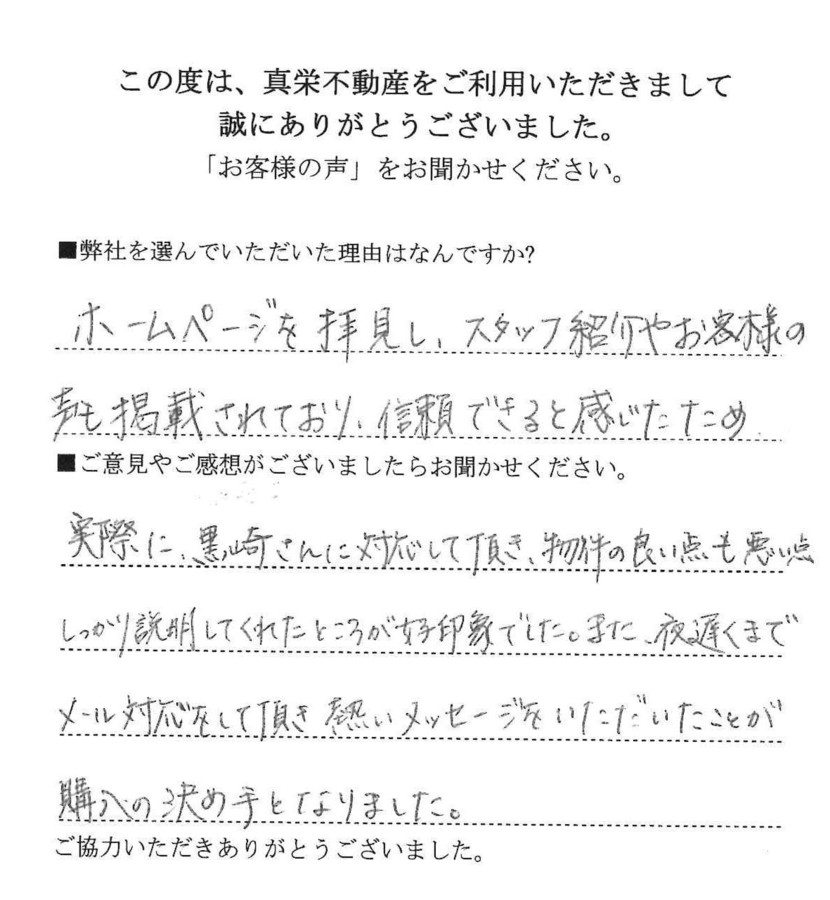 この度は、真栄不動産をご利用いただきまして
誠にありがとうございました。
「お客様の声」をお聞かせください。
■弊社を選んでいただいた理由はなんですか?
ホームページを拝見し、スタッフ紹介やお客様の
声も掲載されており、信頼できると感じたため
■ご意見やご感想がございましたらお聞かせください。
実際に、黒崎さんに対応して頂き、物件の良い点も悪い点
しっかり説明してくれたところが好印象でした。また、夜遅くまで
メール対応をして頂き熱いメッセージをいただいたことが
購入の決め手となりました。
ご協力いただきありがとうございました。